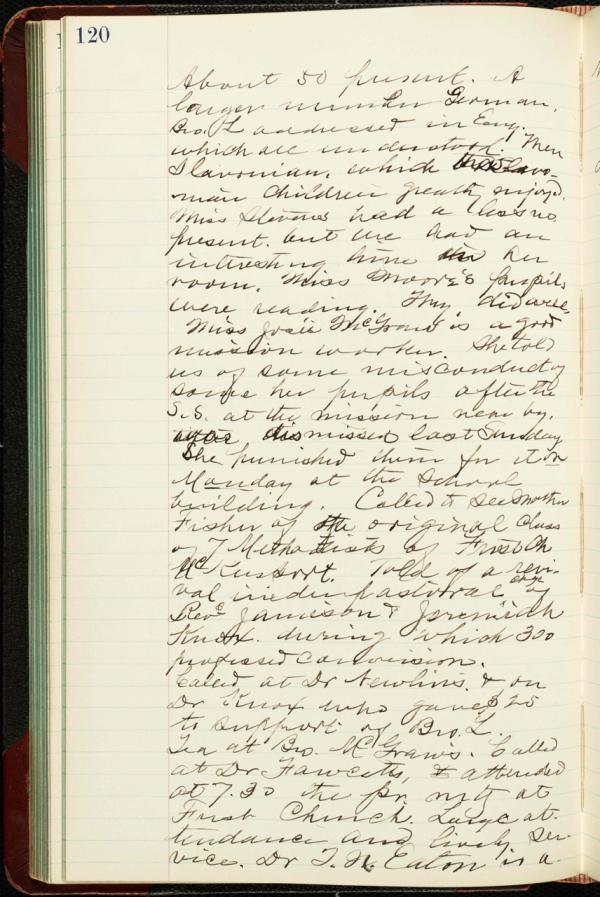 120
About 50 present. A
larger number German.
Bro. L addressed in Eng.
which all understood. Then
Slavonian, which
man children greatly enjoyd.
Miss Stevens had a class no
present. but we had an
interesting time in her
room. Miss Moore's pupils
were reading. They did well.
Miss Josie McGraw is a good
mission worker. She told
us of some misconduct of
some her pupils after the
S.S. at the mission near by.
was dismissed last Sunday
She punished them for it on
Monday at the School
building. Called to see Mother
Fisher of the original class
of 7 Methodists of First Ch
McKeesport. Told of a revi-
val in pastoral of
Revs Jamison & Jeremiah
Knox. during which 300
professed conversion.
Called at Dr Newlins. & on
Dr Knox who gave $25
to support of Bro. L.
Tea at Bro. McGraw's. Called
at Dr Fawcetts, & attended
at 7.30 the pr. mtg at
First Church. Large at-
tendance and lively ser-
vice. Dr T. N. Eaton is a